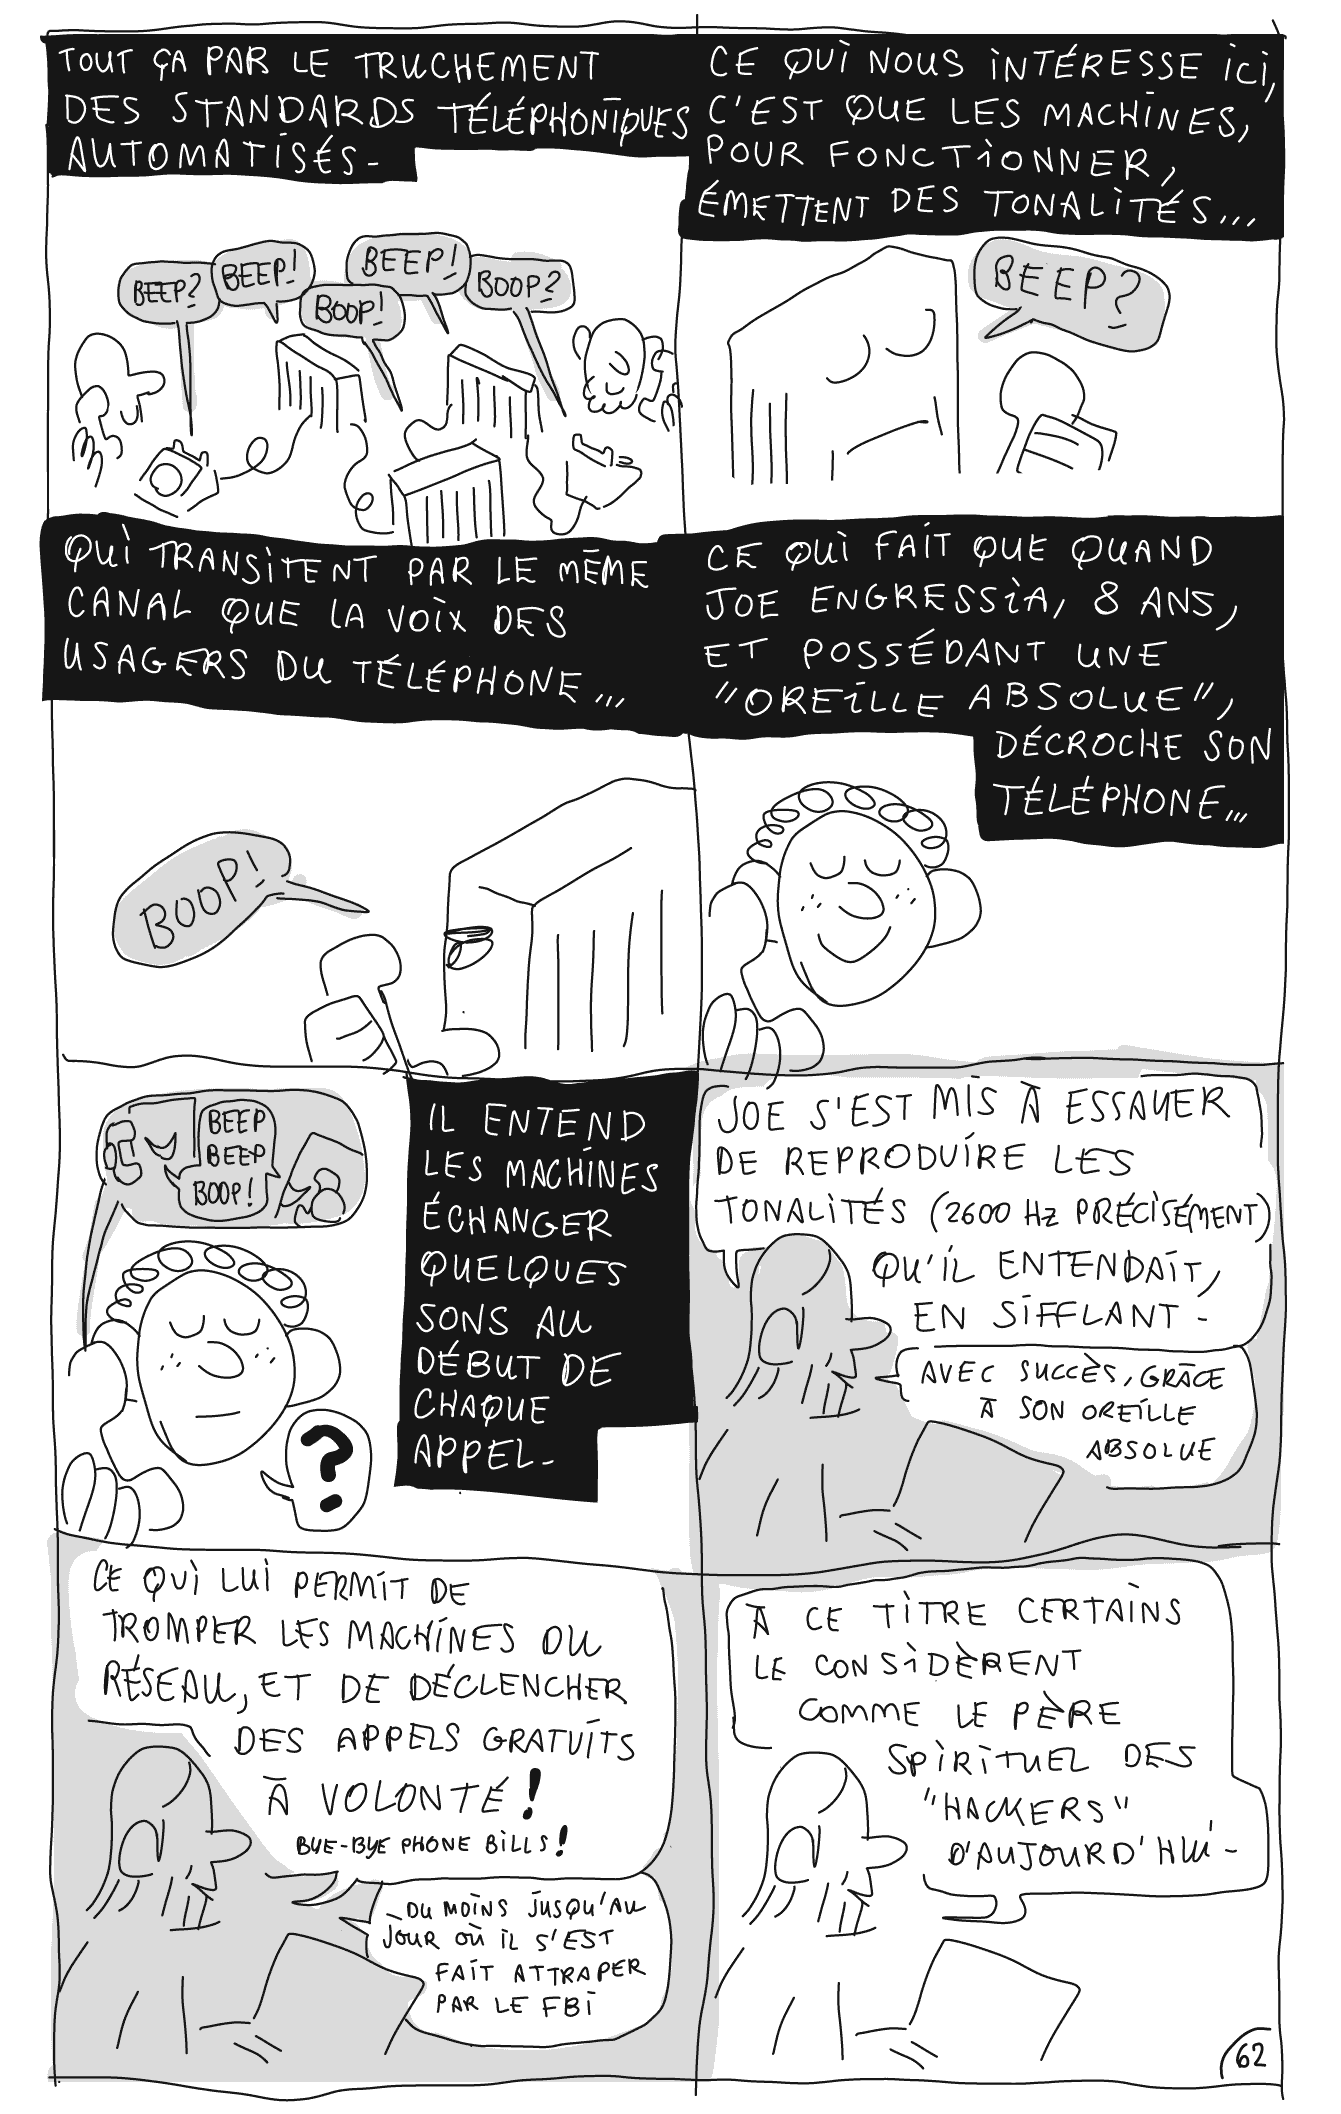 TOUT ÇA PAR LE TRUCHEMENT
DES STANDARDS TÉLÉPHONIQUES
AUTOMATISÉS-
BEEP?
BEEP!
BOOP!
BEEP!
BOOP?
CE QUI NOUS INTÉRESSE ICI,
C'EST QUE LES MACHINES,
POUR FONCTIONNER,
ÉMETTENT DES TONALITÉS...
BEEP?
QUI TRANSITENT PAR LE MÊME
CANAL QUE LA VOIX DES
USAGERS DU TÉLÉPHONE...
BOOP!
CE QUI FAIT QUE QUAND
JOE ENGRESSIA, 8 ANS,
ET POSSÉDANT UNE
"OREILLE ABSOLUE",
DÉCROCHE SON
TÉLÉPHONE...
BEEP
BEEP
BOOP!
?
IL ENTEND
LES MACHINES
ÉCHANGER
QUELQUES
SONS AU
DÉBUT DE
CHAQUE
APPEL-
JOE S'EST MIS À ESSAYER
DE REPRODUIRE LES
TONALITÉS (2600 HZ PRÉCISÉMENT)
QU'IL ENTENDAIT,
EN SIFFLANT-
AVEC SUCCÈS, GRÂCE
À SON OREILLE
ABSOLUE
CE QUI LUI PERMIT DE
TROMPER LES MACHINES DU
RÉSEAU, ET DE DÉCLENCHER
DES APPELS GRATUITS
À VOLONTÉ!
BYE-BYE PHONE BILLS!
DU MOINS JUSQU'AU
JOUR OÙ IL S'EST
FAIT ATTRAPER
PAR LE FBI
À CE TITRE CERTAINS
LE CONSIDÈRENT
COMME LE PÈRE
SPIRITUEL DES
"HACKERS"
D'AUJOURD'HUI-
62